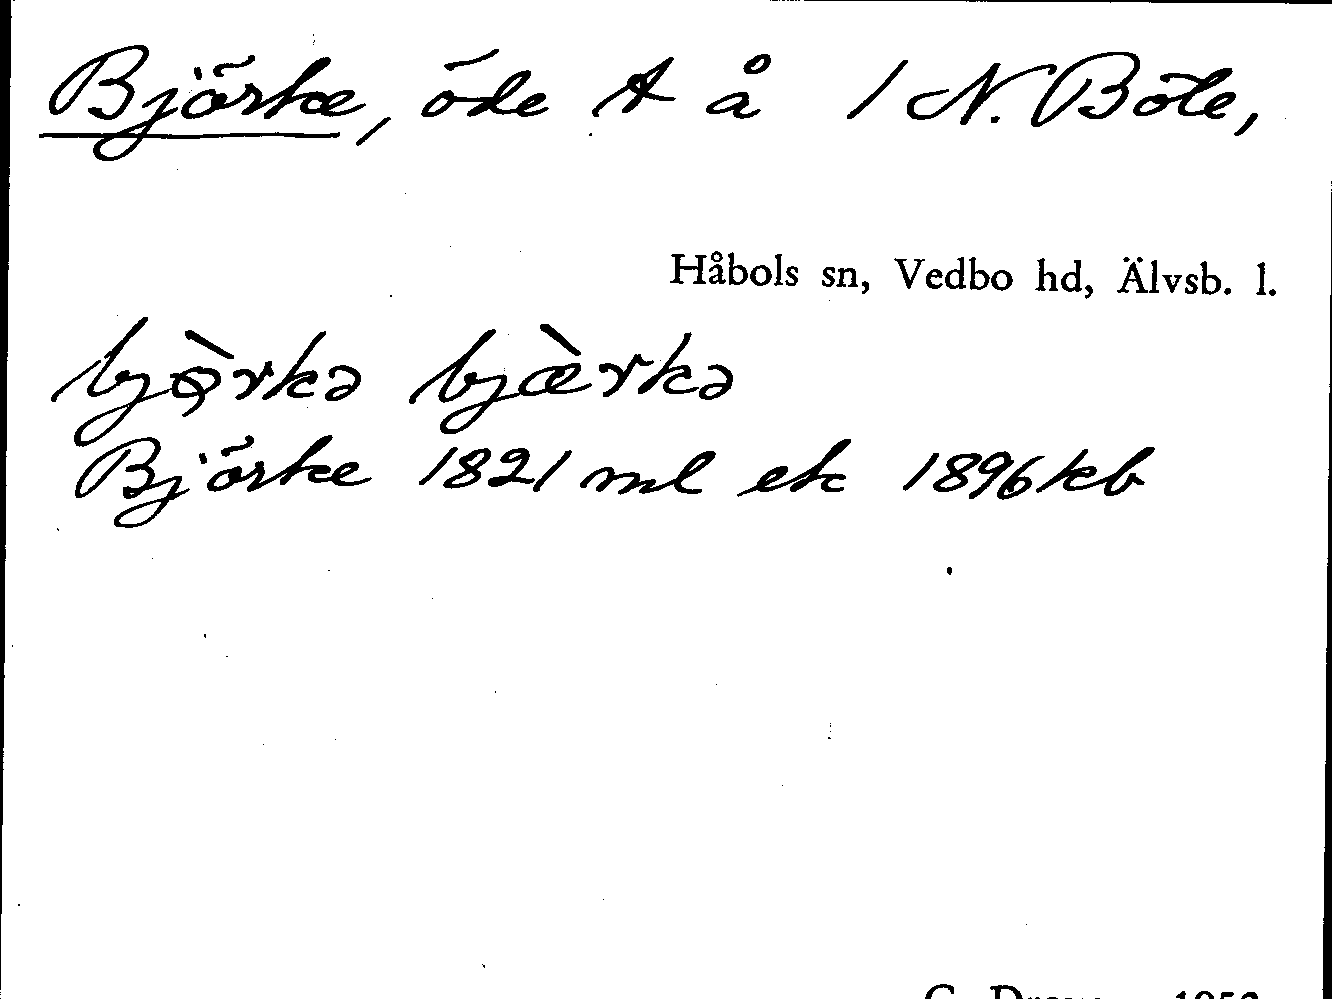 Björke, öde t å 1 N. Böle,
Håbols sn, Vedbo hd, Älvsb. l.
bjǫ̀rkə bjæ̀rkə
Björke 1821 ml ek 1896 kb